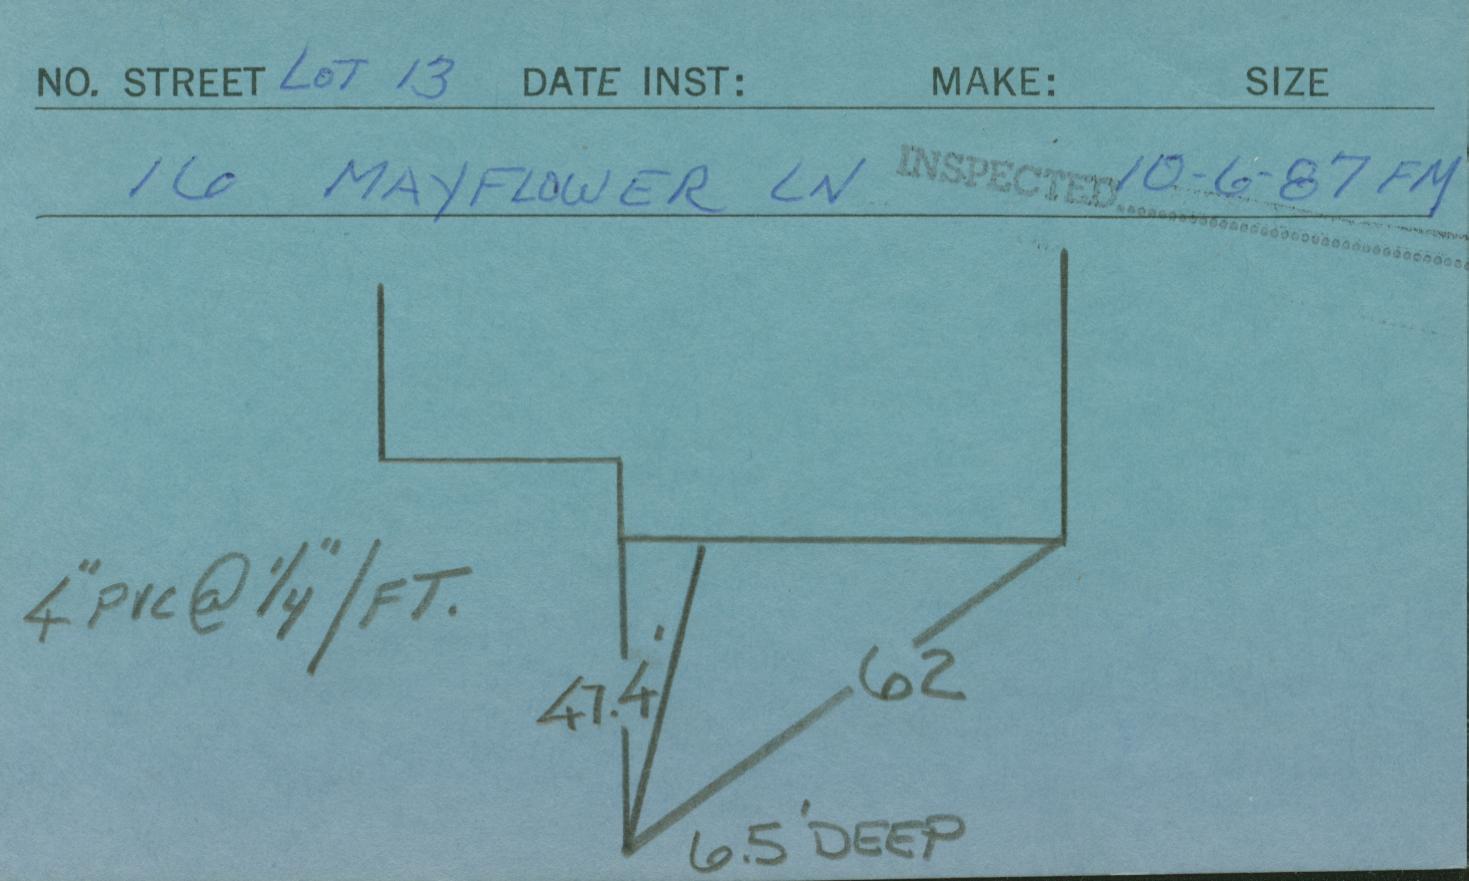 NO. STREET LOT 13 DATE INST: MAKE: SIZE
16 MAYFLOWER LN INSPECTED 10-6-87 FM
4" PVC @ 1/4"/FT.
47.4'
62
6.5' DEEP